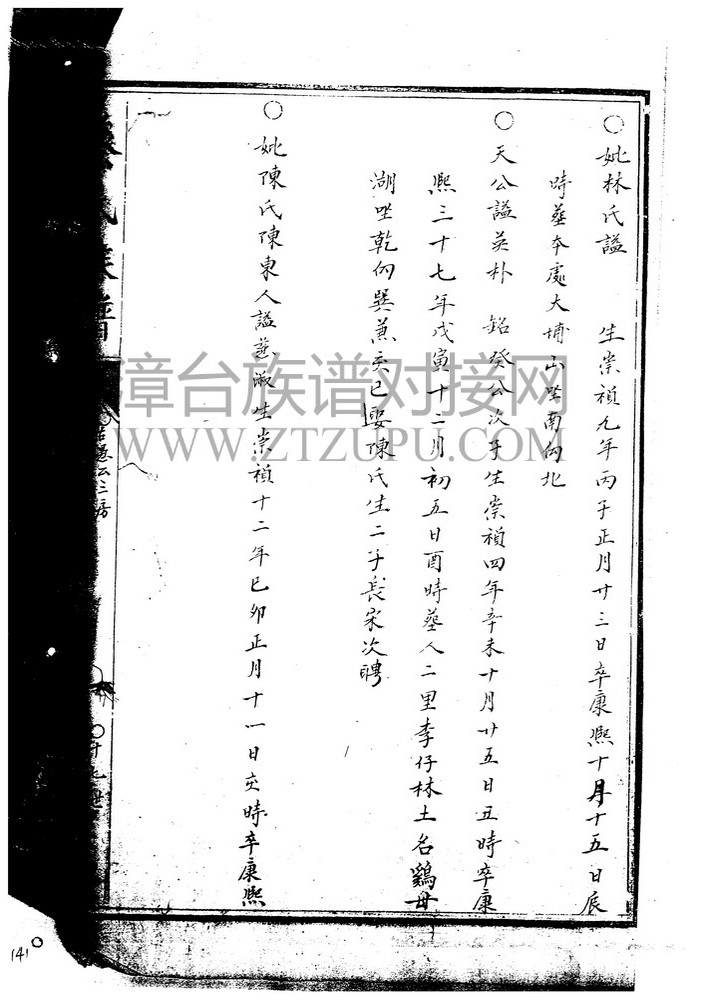 ○妣林氏謚　生崇禎九年丙子正月廿三日卒康熙十月十五日辰
時葬本處大埔山坐南向北
○天公謚英朴　銘癸公次子生崇禎四年辛未十月廿五日丑時卒康
熙三十七年戊寅十二月初五日酉時葬人二里李仔林土名鷄母
湖坐乾向巽兼亥巳娶陳氏生二子長宋次聘
○妣陳氏陳東人謚慈淑生崇禎十二年己卯正月十一日亥時卒康熙
氏族譜
公三房
世
141
漳台族谱对接网
WWW.ZTZUPU.COM